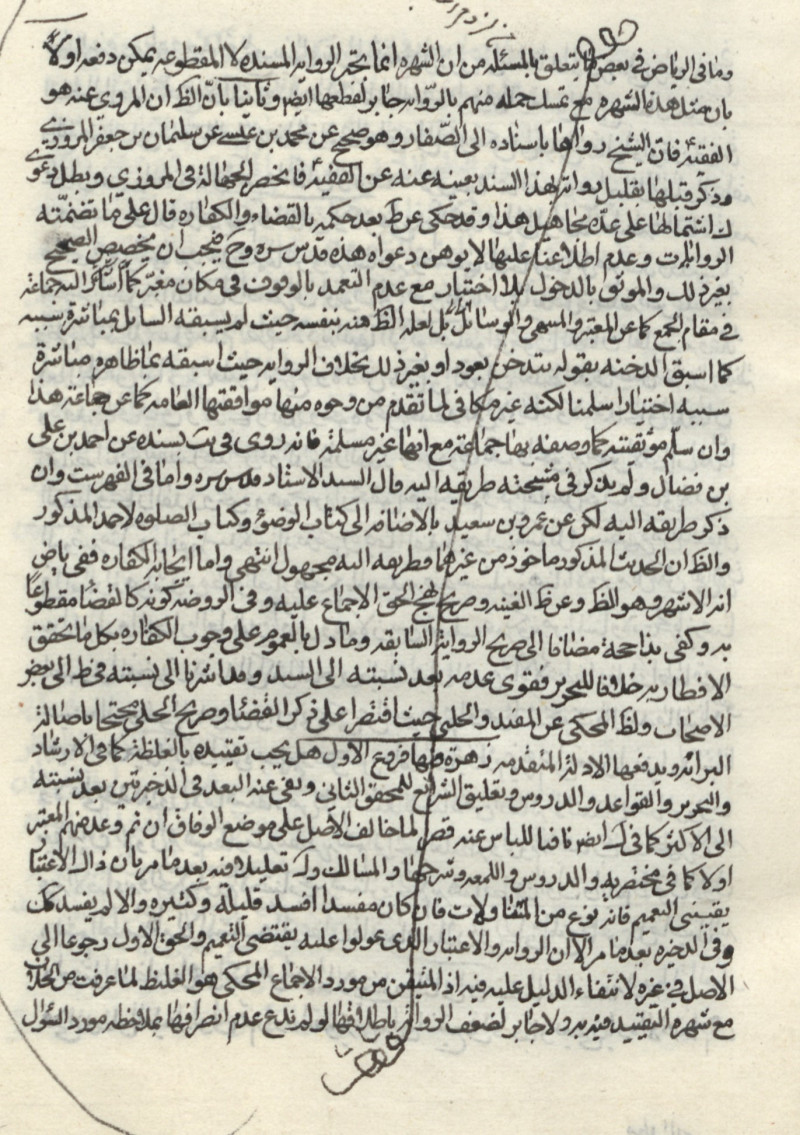 وما فى الرياض فى بعض ما يتعلق بالمسئلة من ان الشهرة انما يجبر الرواية المسندة لا المقطوعة يمكن دفعه اولاً
بان مثل هذه الشهرة مع تمسك جملة منهم بالرواية جابر لقطعها ايض وثانيا بان الظ ان المروى عنه هو
الفقيه فان الشيخ رواها باسناده الى الصفار وهو صحيح عن محمد بن عيسى عن سليمان بن جعفر المروزى
وذكر قبلها بقليل رواية بهذا السند بعينه عنه عن الفقيه فانحصر الجهالة فى المروزي وبطل دعوى
ك اشتمالها على عدة مجاهيل هذا وقد حكى عن ط بعد حكمه بالقضاء والكفارة قال على ما تضمنته
الروايات وعدم اطلاعنا عليها لا يوهن دعواه هذه قدس سره وح فيجب ان يخصص الصحيح
بغير ذلك والموثق بالدخول بلا اختيار مع عدم التعمد بالوقوف فى مكان مغبّر كما اشار اليه جماعة
فى مقام الجمع كما عن المعتبر والمنتهى والوسائل بل لعله الظ منه بنفسه حيث لم يسبقه السائل بمباشرة سببه
كما اسبق الدخنة بقوله يتدخن بعود او بغير ذلك بخلاف الرواية حيث اسبقه بما ظاهره مباشرة
سببه اختيارا سلمنا لكنه غير مكافى لما تقدم من وجوه منها موافقتها العامة كما عن جماعة هذا
وان سلّم موثقيته كما وصفه بها جماعة مع انها غير مسلمة فانه روى فى يب بسنده عن احمد بن على
بن فضال ولم يذكر فى مشيخته طريقه اليه قال السيد الاستاد قدس سره واما فى الفهرست وان
ذكر طريقه اليه لكن عن عمرو بن سعيد بالاضافة الى كتاب الوضوء وكتاب الصلوة لاحمد المذكور
والظ ان الحديث المذكور ماخوذ من غيرهما وطريقه اليه مجهول انتهى واما ايجابه الكفارة ففى ياض
انه الاشهر وهو الظ وعن ظ الغنية وصريح نهج الحق الاجماع عليه وفى الروضة كونه كالقضا مقطوعاً
به وكفى بذا حجة مضافا الى صريح الرواية السابقة وما دل بالعموم على وجوب الكفارة بكل ما يتحقق
الافطار به خلافا للتحرير فقوى عدمه بعد نسبته الى السيد وقد اشرنا الى نسبته فى ط الى بعض
الاصحاب ولظ المحكى عن المفيد والحلبى حيث اقتصرا على ذكر القضا وصريح الحلى محتجا باصالة
البرائة ويدفعها الادلة المتقدمة فروع الاول هل يجب تقييده بالغلظة كما فى الارشاد
والتحرير والقواعد والدروس وتعليق الشرائع للمحقق الثانى ونفى عنه البعد فى الذخيرة بعد نسبته
الى الاكثر كما فى ك ايض نافيا للباس عنه قصرا لما خالف الاصل على موضع الوفاق ان تم وعدمه المعتبر
اولا كما فى مختصريه والدروس واللمعة وشرحها والمسالك وك تعليلا فيه بعد ما مر بان ذاك الاعتبار
يقتضى التعميم فانه نوع من المتناولات فان كان مفسدا افسد قليله وكثيره والا لم يفسد كك
وفى الذخيرة بعد ما مر الا ان الرواية والاعتبار الذى عولوا عليه يقتضى التعميم والحق الاول رجوعا الى
الاصل فى غيره لانتفاء الدليل عليه فيه اذ المتيقن من مورد الاجماع المحكى هو الغليظ لما عرفت من الخلاف
مع شهرة التقييد فيه به ولا جابر لضعف الرواية باطلاقها لو لم ندع عدم انصرافها بملاحظة مورد السؤال